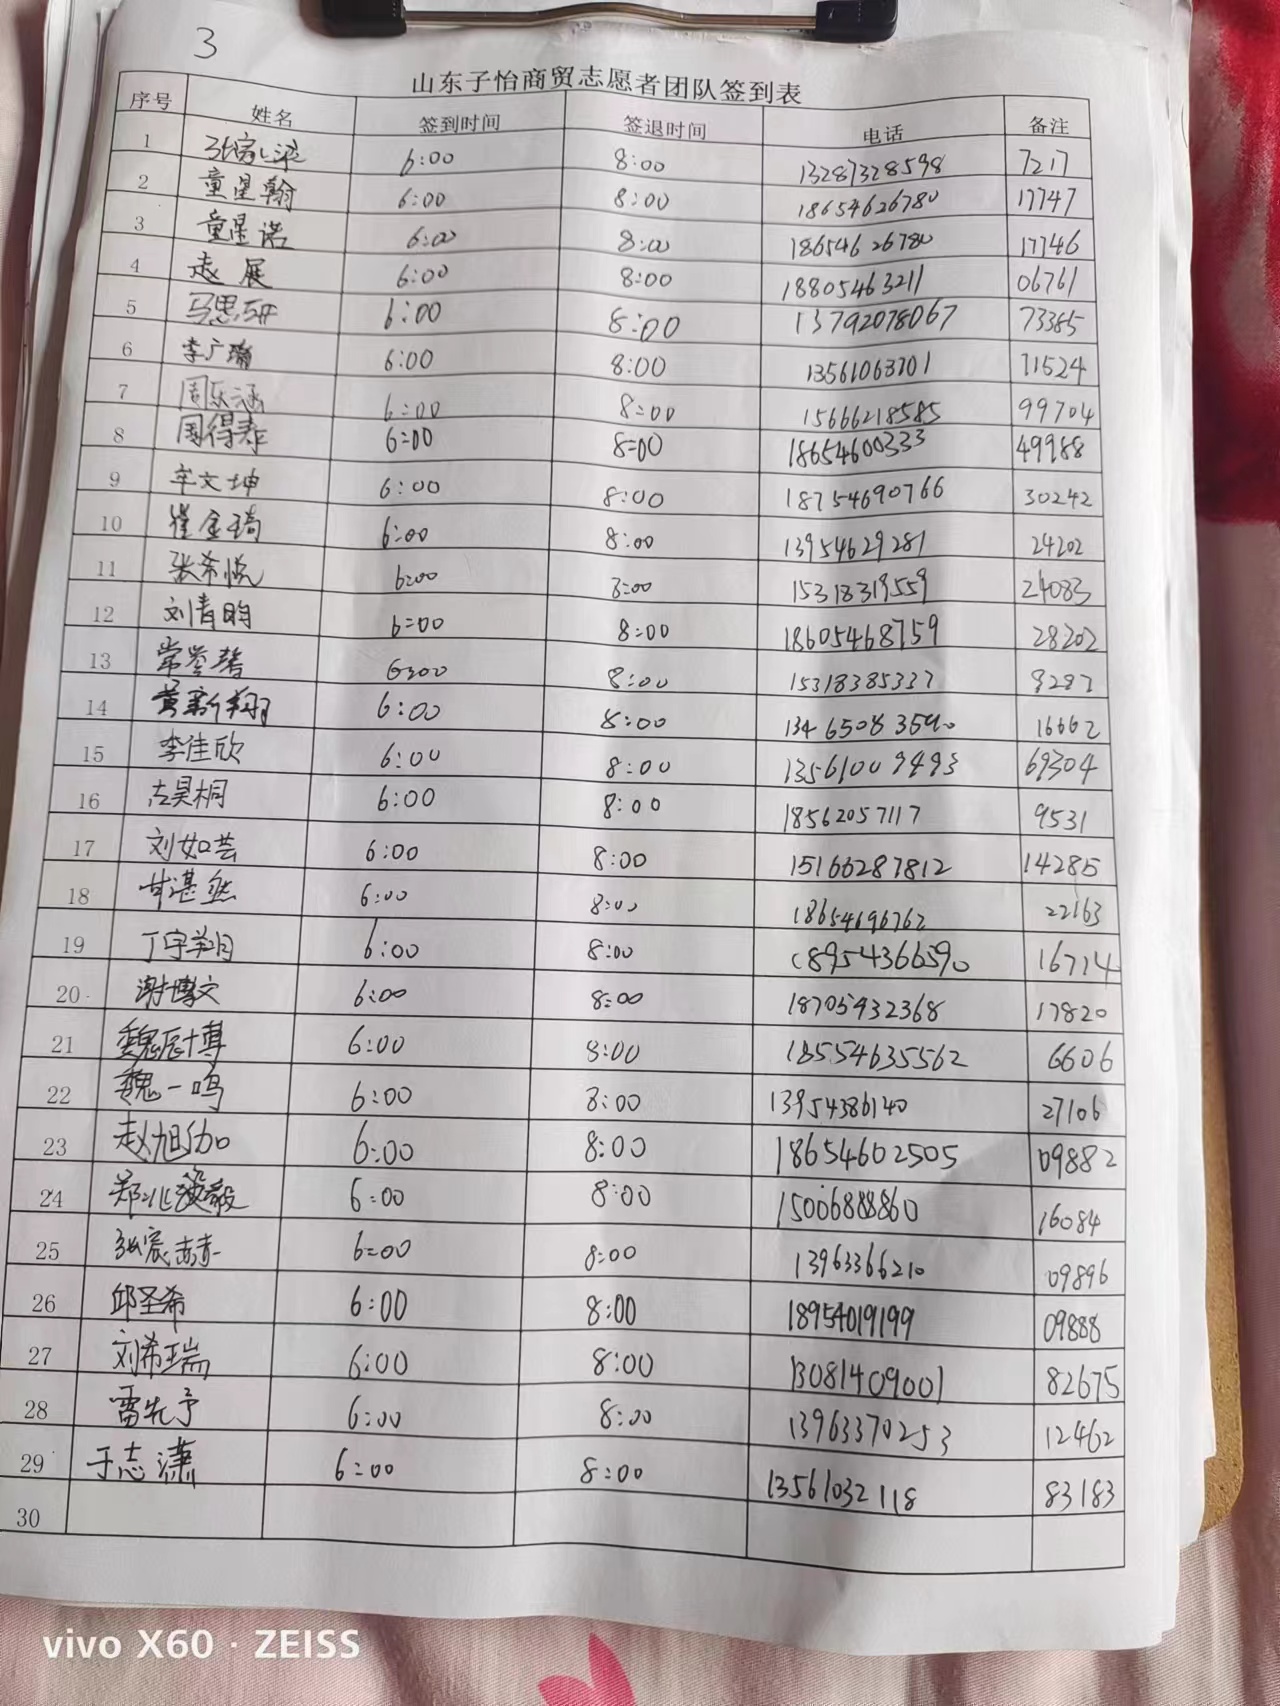 3
山东子怡商贸志愿者团队签到表
序号 姓名 签到时间 签退时间 电话 备注
1 6:00 8:00 13287328598 7217
2 童星翰 6:00 8:00 18654626780 17747
3 童星诺 6:00 8:00 18654626780 17746
4 赵展 6:00 8:00 18805463211 06761
5 马思研 6:00 8:00 13792078067 73385
6 李广瀚 6:00 8:00 13561063701 11524
7 周乐涵 6:00 8:00 15666218585 99704
8 周得泰 6:00 8:00 18654600333 49988
9 牟文坤 6:00 8:00 18754690766 30242
10 崔金琦 6:00 8:00 13954629281 24202
11 张希悦 6:00 8:00 15318319559 24083
12 刘青昀 6:00 8:00 18605468759 28202
13 6:00 8:00 15318385337 8287
14 黄新翔 6:00 8:00 13465083540 16662
15 李佳欣 6:00 8:00 13561009493 69304
16 古昊桐 6:00 8:00 18562057117 9531
17 刘如芸 6:00 8:00 15166287812 14285
18 甘湛然 6:00 8:00 18654696762 22163
19 丁宇翔 6:00 8:00 18954366590 16714
20 谢博文 6:00 8:00 18705432368 17820
21 魏辰博 6:00 8:00 18554635562 6606
22 魏一鸣 6:00 8:00 13954386140 27106
23 赵旭加 6:00 8:00 18654602505 09882
24 6:00 8:00 15006888860 16084
25 张宸赫 6:00 8:00 13963366210 09896
26 邱圣希 6:00 8:00 18954019199 09888
27 刘希瑞 6:00 8:00 13081409001 82675
28 雷先予 6:00 8:00 13963370253 12462
29 于志潇 6:00 8:00 13561032118 83183
30
vivo X60 · ZEISS